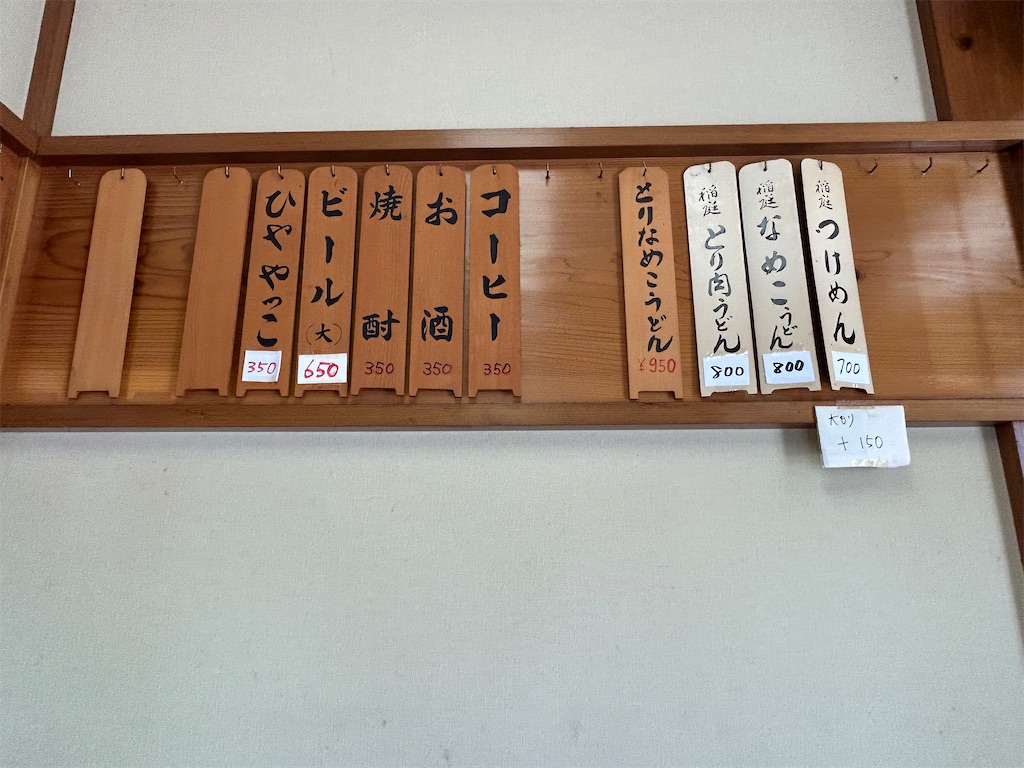 稲庭 つけめん
700
稲庭 なめこうどん
800
稲庭 とり肉うどん
800
とりなめこうどん
¥950
コーヒー
350
お酒
350
焼酎
350
ビール(大)
650
ひややっこ
350
大もり
+150